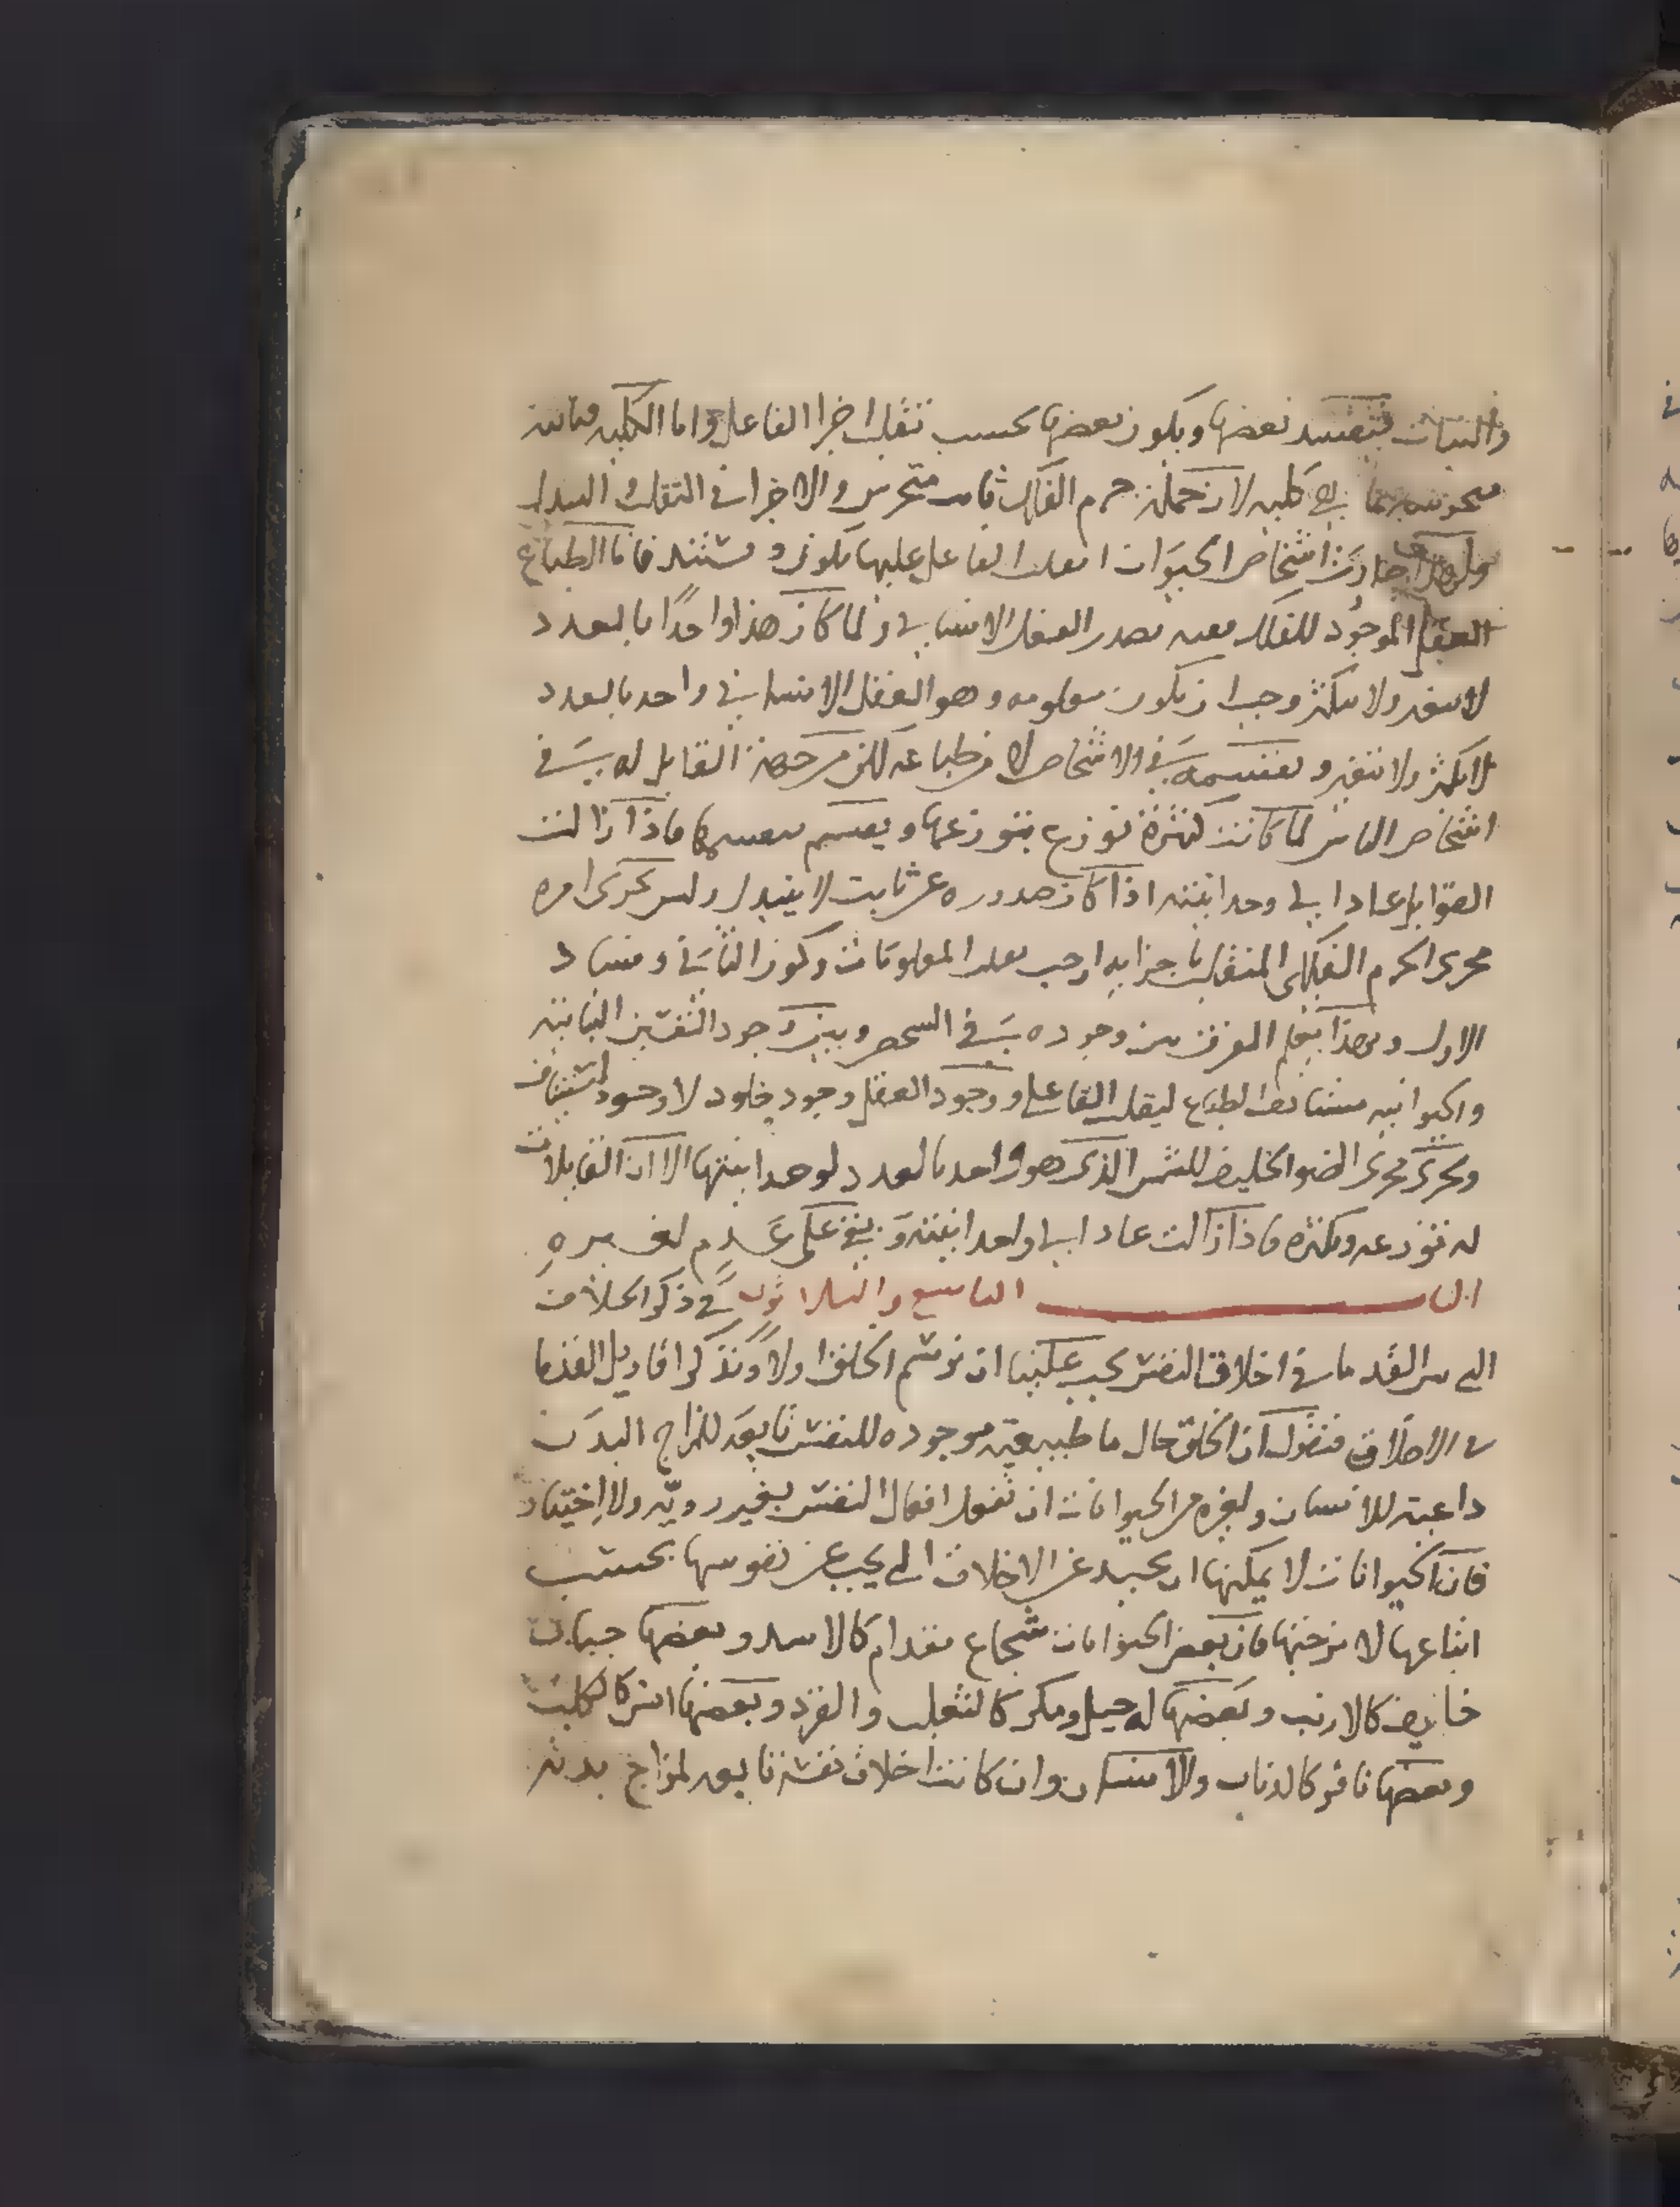 والنبات فيفسد بعضها ويكون بعضها بحسب تنقل اجزا الفاعل واما الكليه فثابته
كليه لان جملة جرم الفلك ثابت متحرس والاجزا في التنقل و التبدل
اشخاص الحيوان الفاعل عليها بكون و فاما الطباع
العقلي الموجود للفلك فعنه يصدر العقل الانساني ولما كان هذا واحدًا بالعدد
لا يتغير ولا يتكثر وجب ان يكون معلومه وهو العقل الانساني واحد بالعدد
لا يكثر ولا يتغير و تقسيمه في الاشخاص لا من طباعه لكن من جهة القابل له في
اشخاص الناس لما كانت كثيرة توزع بتوزعها ويقسم بقسمها فاذا زالت
القوابل عاد الى وحدانيته اذا كان صدوره عن ثابت لا يتبدل وليس يجرى امره
مجرى الجرم الفلكي المتنقل باجزايه اوجب المعلومات وكون الثاني وفساد
الاول وبهذا يقع الفرق بين وجوده في الشخص وبين وجود النفس النباتيه
والحيوانيه الطباع لتنقل الفاعل ووجود العقل وجود خلود لا وجود
ويجرى مجرى الضو الخليض للشمس الذى هو واحد بالعدد لوحدانيتها الا ان القابلات
له توزعه وتكثره فاذا زالت عاد الى واحدانيته وبقي على عدم لغيره
الباب التاسع والثلاثون في ذكر الخلاف
الذي بين القدما في اخلاق النفس يجب علينا ان نرسم الخلق اولا ونذكر اقاويل القدما
في الاخلاق فنقول ان الخلق حال ما طبيعيه موجوده للنفس تابعة للمزاج البدن
داعية للانسان ولغيره من الحيوانات ان تفعل افعال النفس بغير رويّه ولا اختيار
فان الحيوانات لا يمكنها ان تحيد عن الاخلاق التي يجب عن نفوسها بحسب
اتباعها لامزجتها فان بعض الحيوانات شجاع مقدام كالاسد وبعضها جبان
خايف كالارنب وبعضها له حيل ومكر كالثعلب والقرد وبعضها انس كالكلب
وبعضها نافر كالذياب والانسان وان كانت اخلاق نفسه تابعه لمزاج بدنه